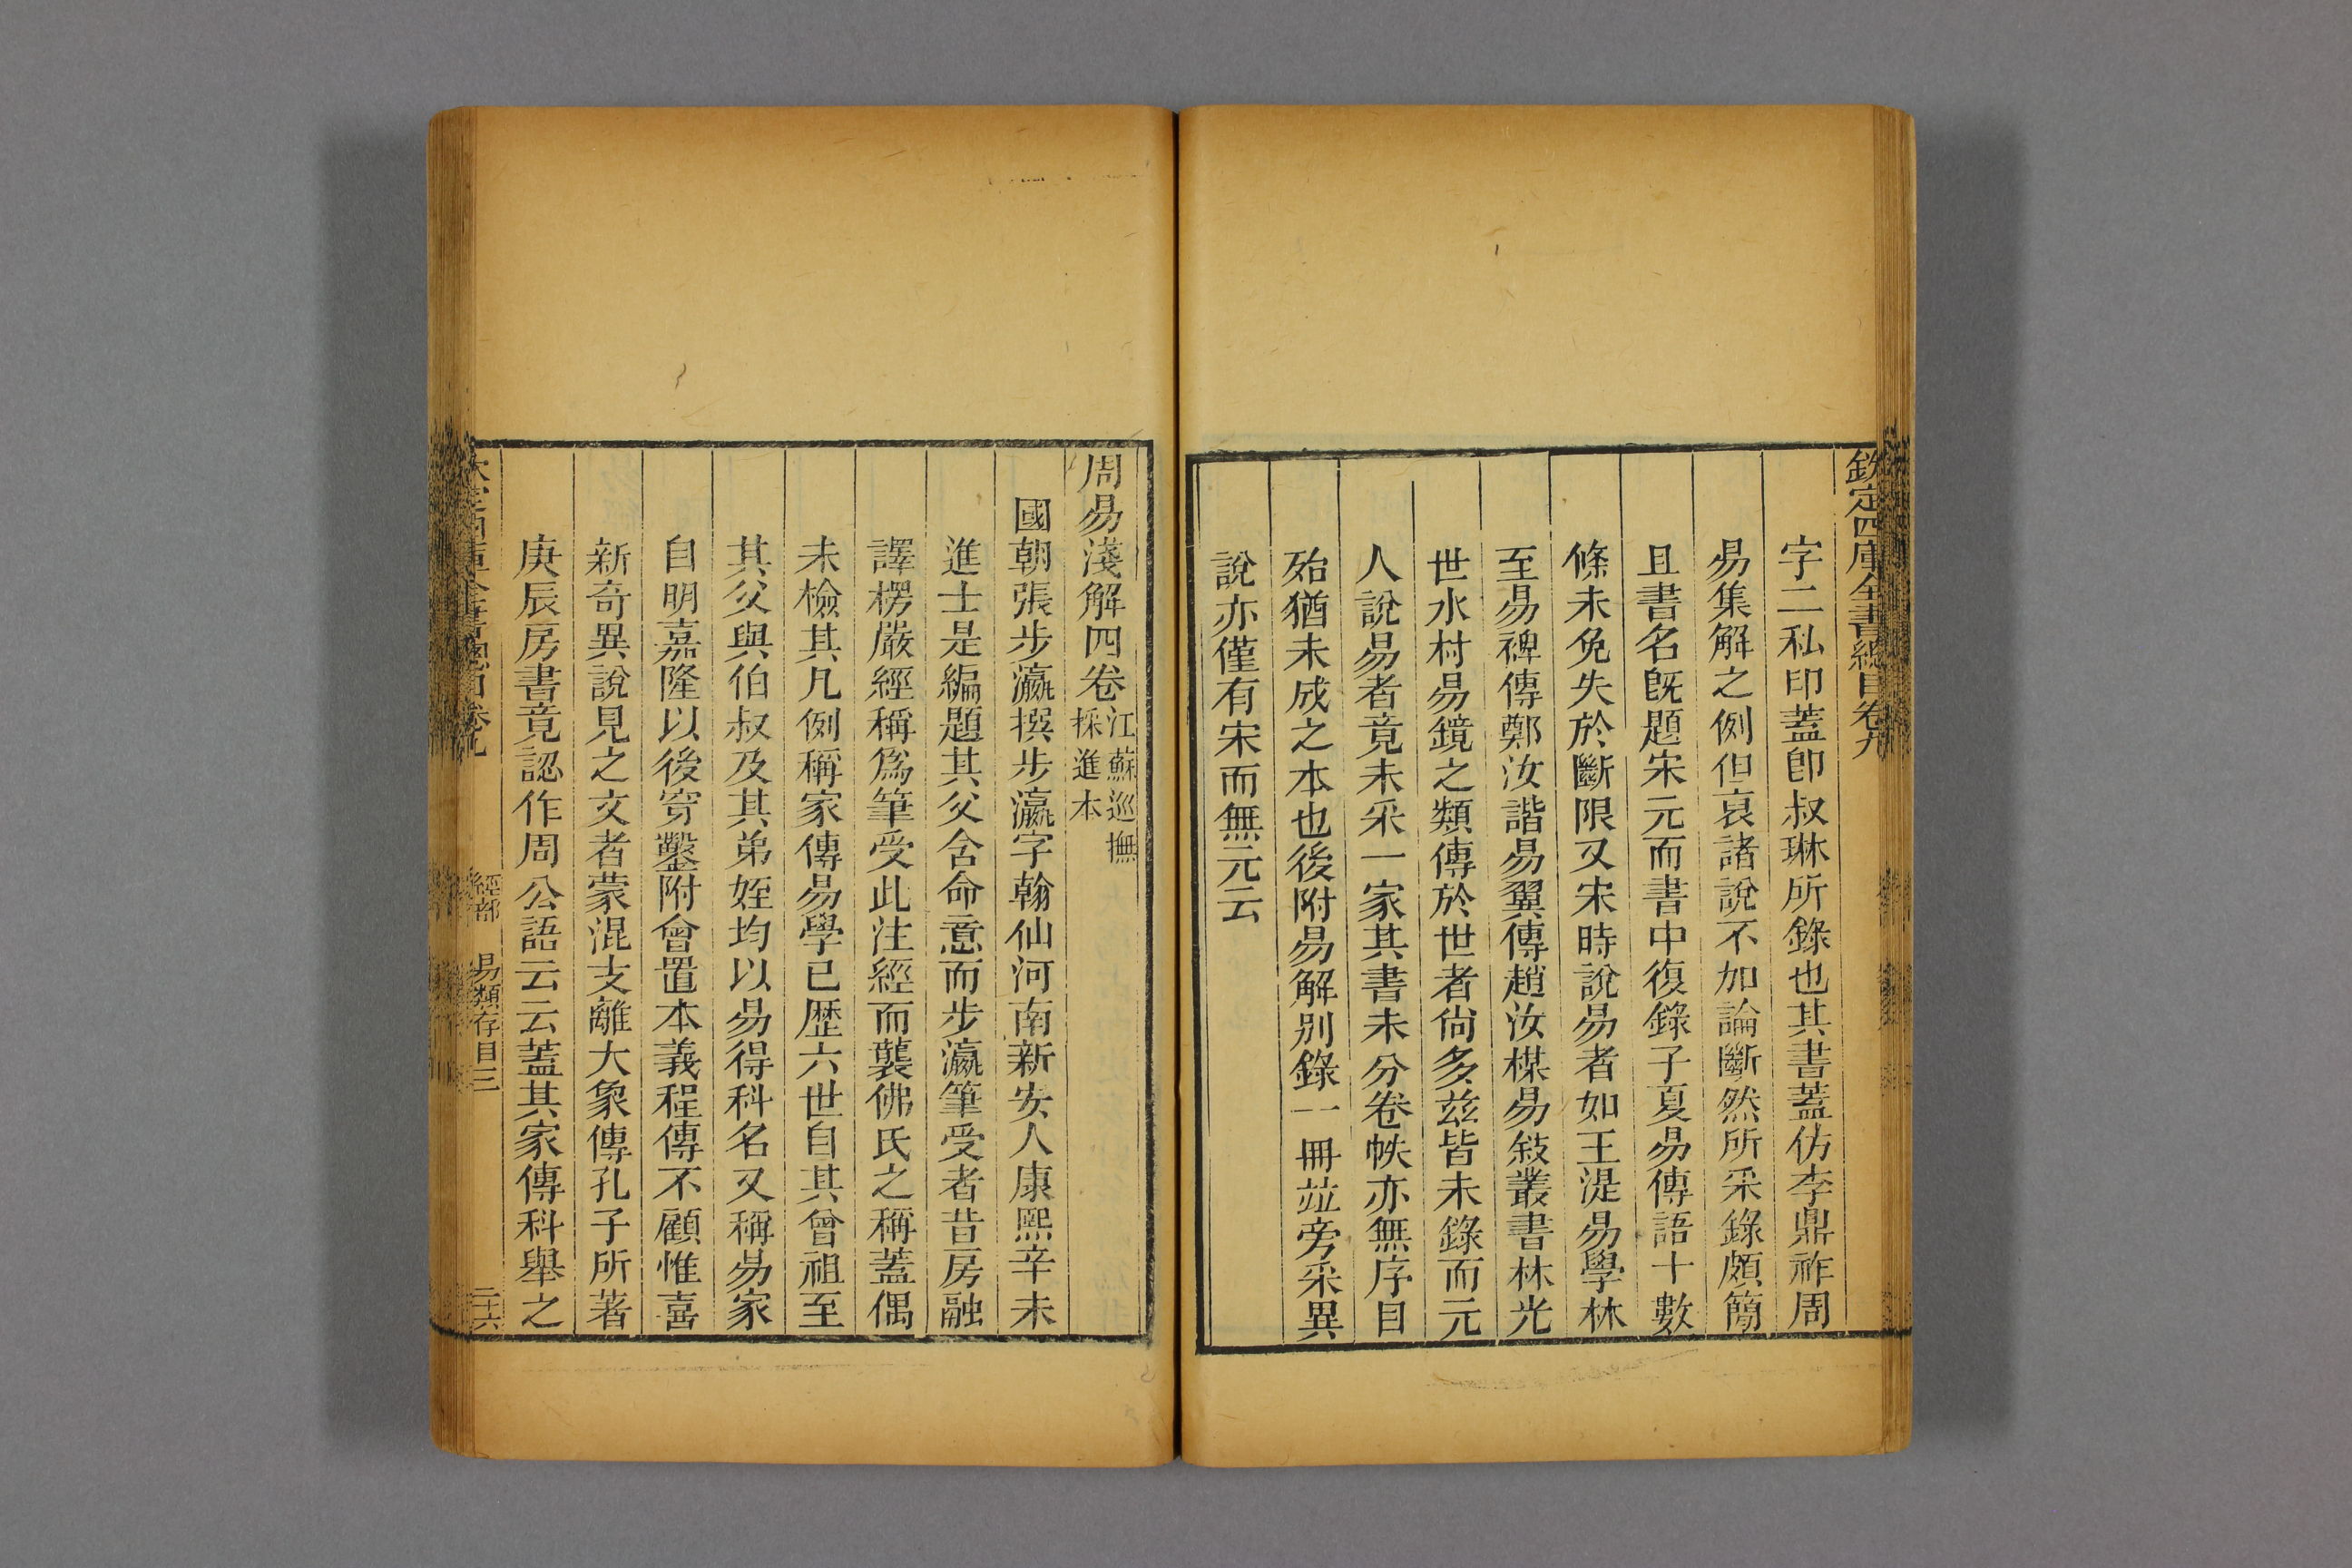 欽定四庫全書總目卷九
字二私印蓋卽叔琳所錄也其書蓋仿李鼎祚周
易集解之例但裒諸說不加論斷然所采錄頗簡
且書名旣題宋元而書中復錄子夏易傳語十數
條未免失於斷限又宋時說易者如王湜易學林
至易裨傳鄭汝諧易翼傳趙汝楳易敍叢書林光
世水村易鏡之類傳於世者尙多茲皆未錄而元
人說易者竟未采一家其書未分卷帙亦無序目
殆猶未成之本也後附易解別錄一冊竝旁采異
說亦僅有宋而無元云
周易淺解四卷江蘇巡撫採進本
國朝張步瀛撰步瀛字翰仙河南新安人康熙辛未
進士是編題其父含命意而步瀛筆受者昔房融
譯楞嚴經稱爲筆受此注經而襲佛氏之稱蓋偶
未檢其凡例稱家傳易學已歷六世自其曾祖至
其父與伯叔及其弟姪均以易得科名又稱易家
自明嘉隆以後穿鑿附會置本義程傳不顧惟喜
新奇異說見之文者蒙混支離大象傳孔子所著
庚辰房書竟認作周公語云云蓋其家傳科舉之
欽定四庫全書總目卷九
經部 易類存目三
二十六